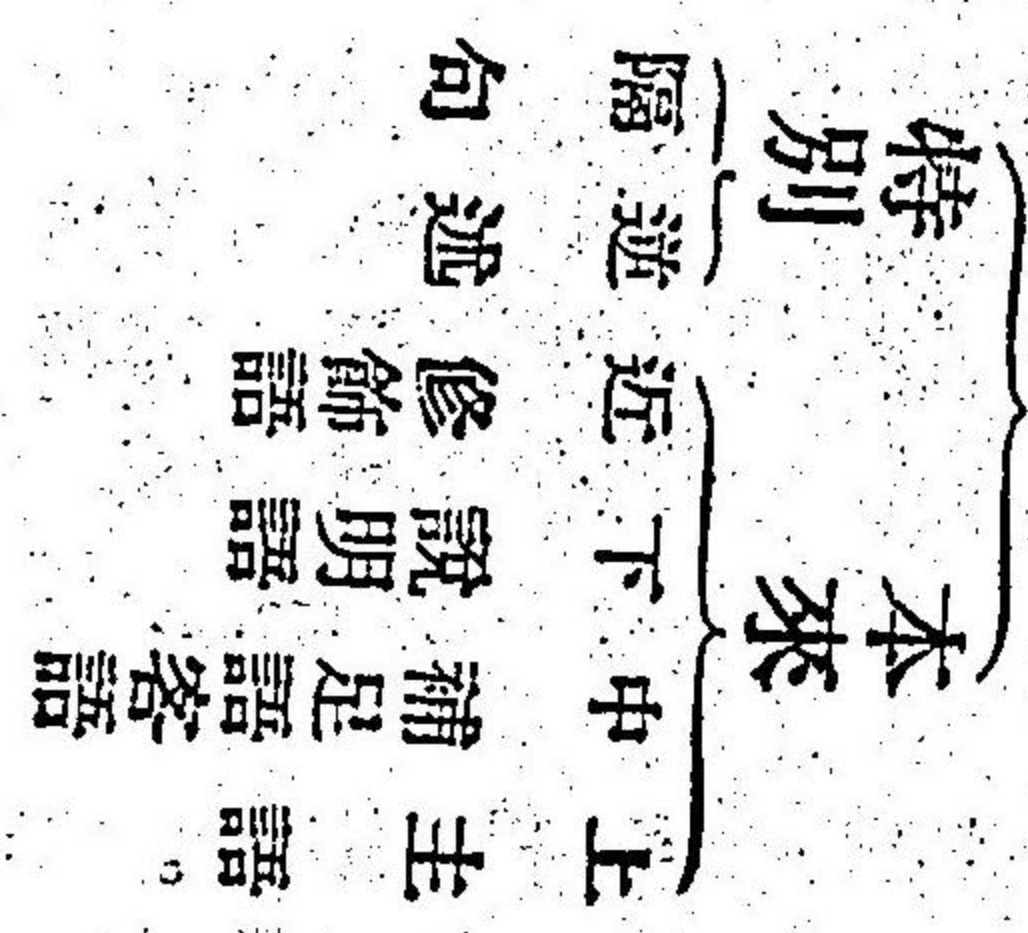 本來
上 主語
中 補足語客語
下 說明語
近 修飾語
特別
隔 句